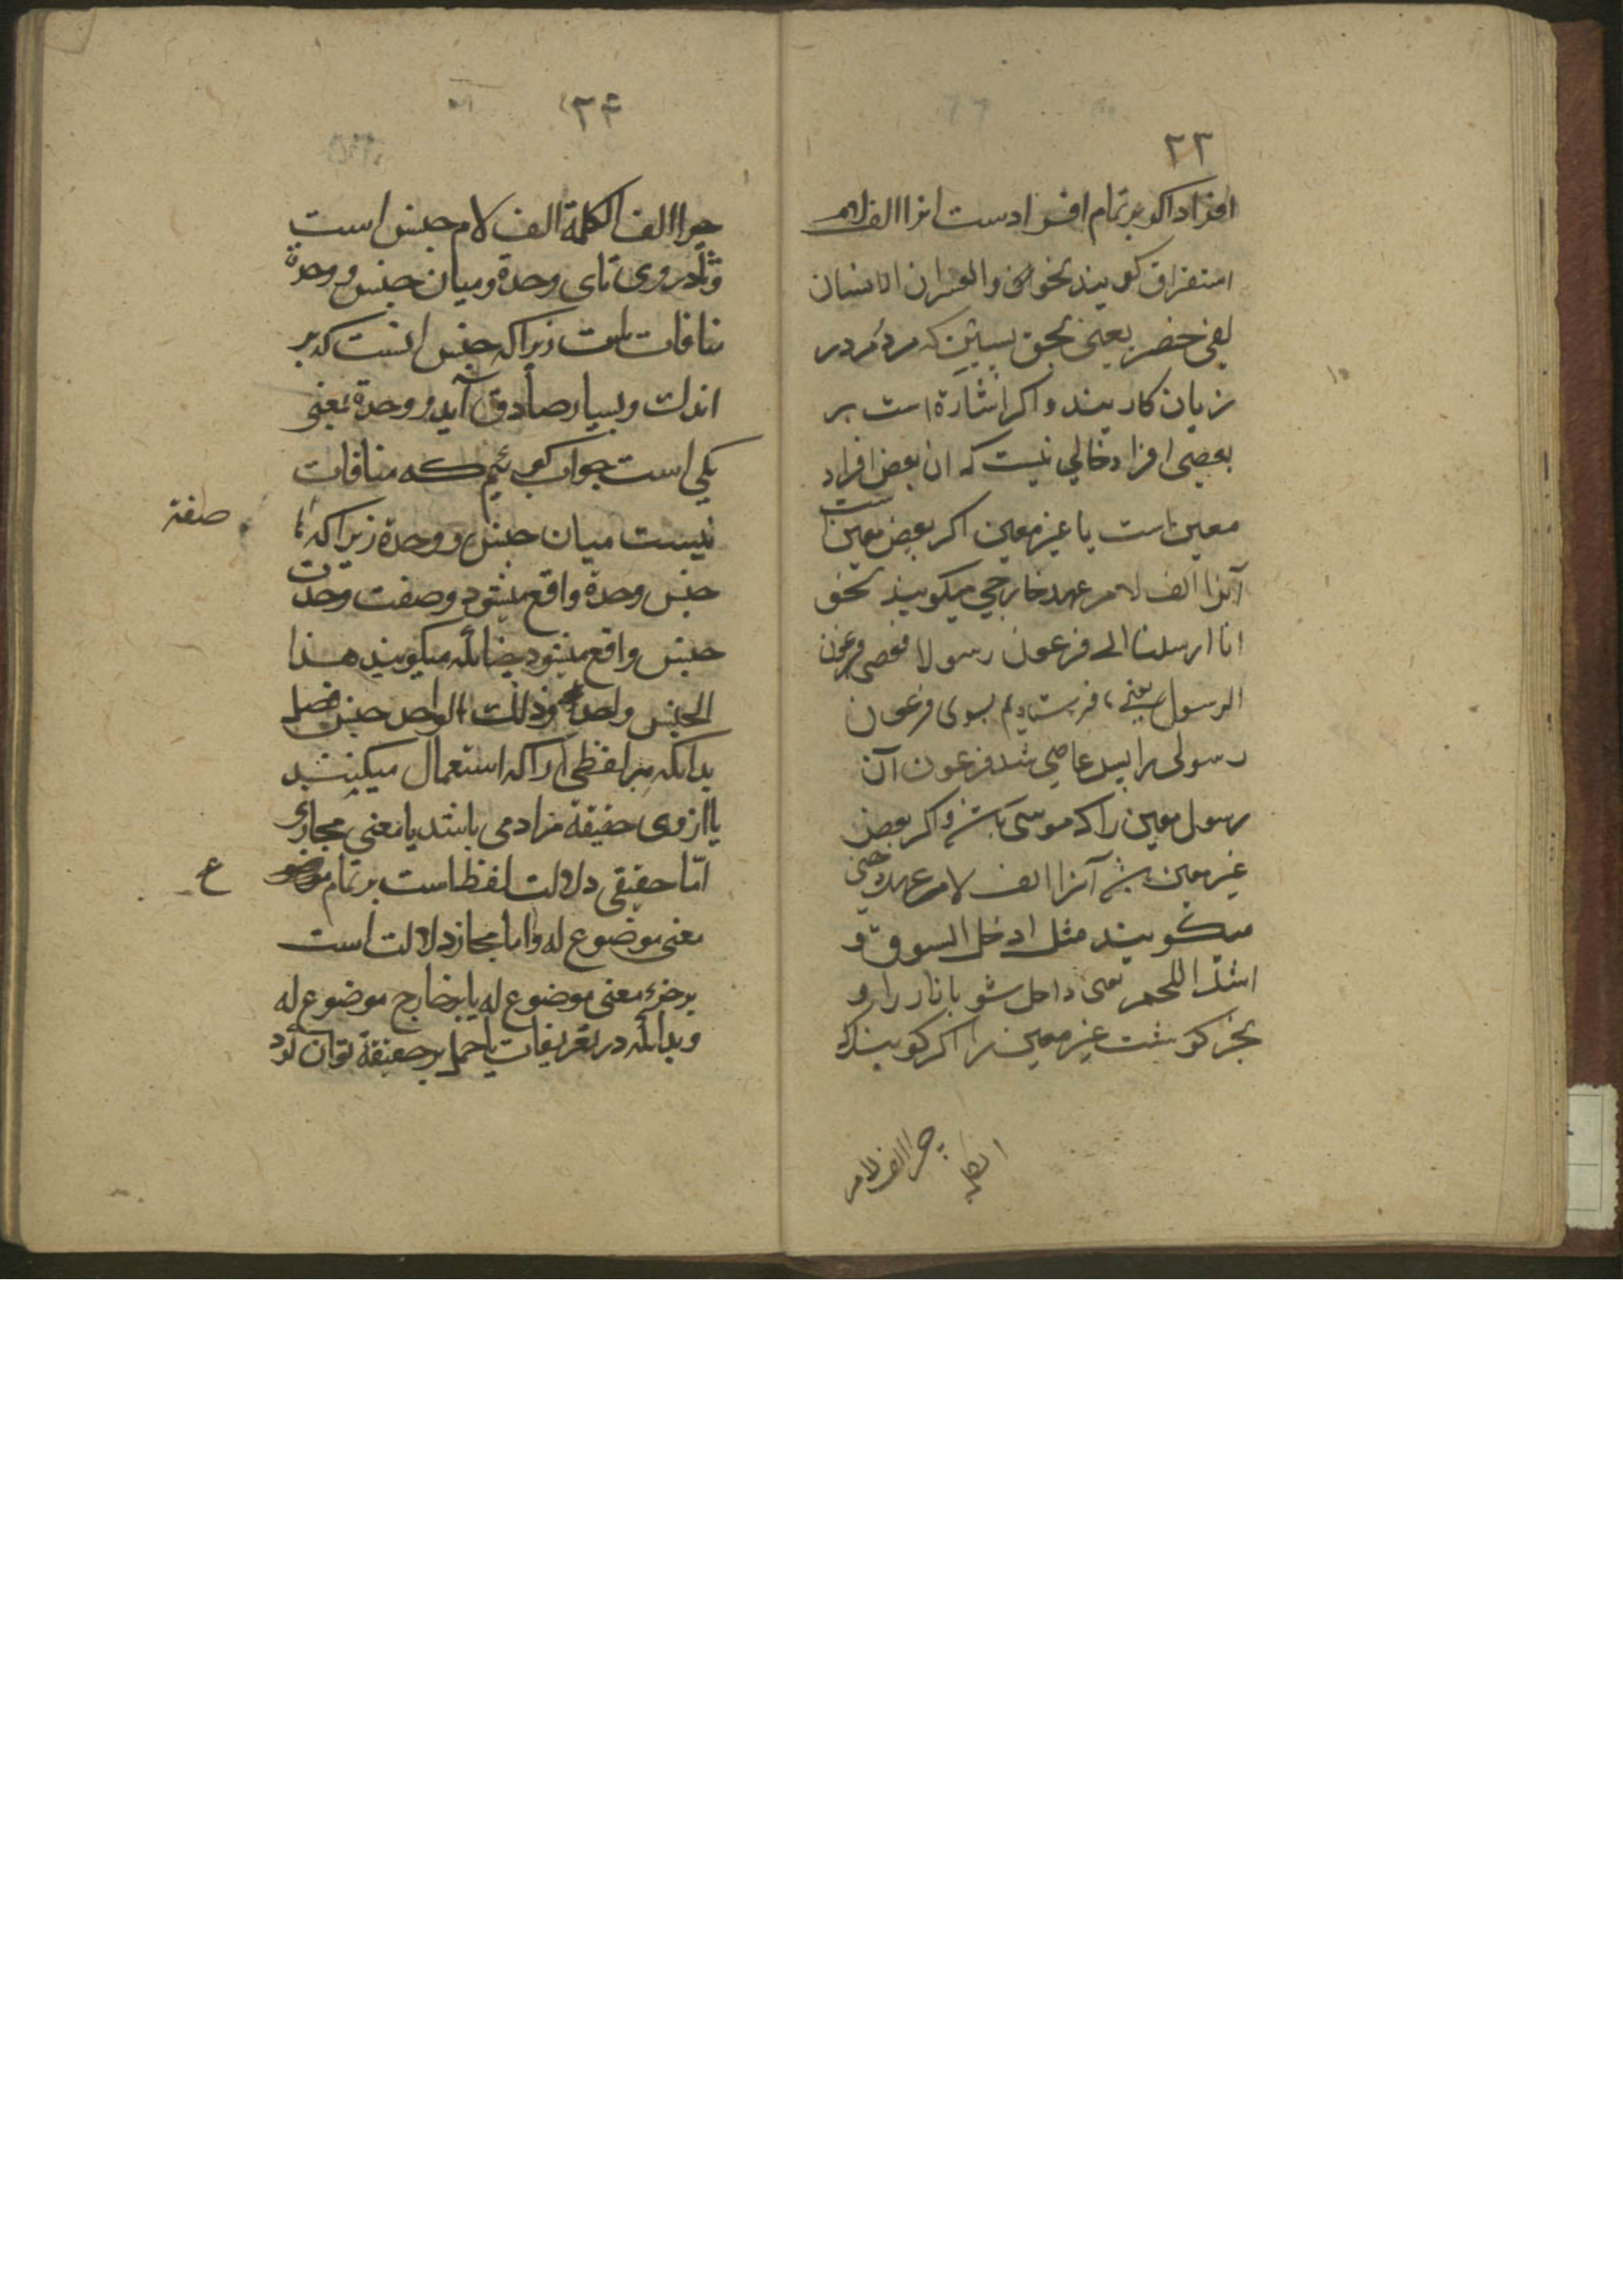 ۲۳
افراد اکر بر تمام افرادست انرا الف لام
استغراق کویند نحو والعصر ان الانسان
لفی خسر یعنی بحق پسین که مردم در
زیان کارینند و اکر اشارة است بر
بعضی افراد خالی نیست که ان بعض افراد
معین است یا غیر معین اکر بعض معین است
آنرا الف لام عهد خارجی میکویند نحو
انا ارسلنا الی فرعون رسولا فعصی فرعون
الرسول یعنی فرستادیم بسوی فرعون
رسولی را پس عاصی شد فرعون آن
رسول معین را که موسی باشد و اکر بعض
غیر معین باشد آنرا الف لام عهد ذهنی
میکویند مثل ادخل السوق و
اشتر اللحم یعنی داخل شو بازار را و
بخر کوشت غیر معین را اکر کویند که
چرا الف لام
الکلمة
۲۴
چرا الف الکلمة الف لام جنس است
و تا در وی تای وحدة و میان جنس و وحدة
منافات است زیرا که جنس انست که بر
اندک و بسیار صادق آید و وحدة بمعنی
یکی است جواب کوییم که منافات
نیست میان جنس و وحدة زیرا که
صفة
جنس وحدة واقع میشود و صفت وحدت
جنس واقع میشود چنانکه میکویند هذا
الجنس واحد وذلک الواحد جنس فصل
بدانکه هر لفظی را که استعمال میکنند
یا از وی حقیقة مراد می باشد یا معنی مجازی
امّا حقیقی دلالت لفظ است بر تمام موضو
ع
معنی موضوع له و اما مجاز دلالت است
بر جزء معنی موضوع له یا بر خارج موضوع له
و بدانکه در تعریفات یا حمل بر حقیقة توان کرد